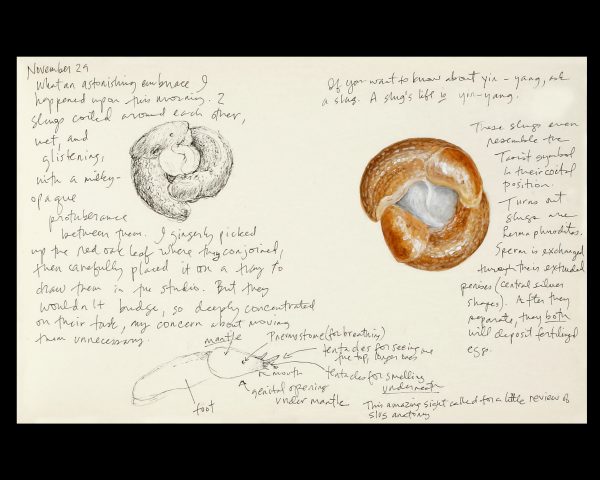 November 29
What an astonishing embrace I
happened upon this morning. 2
slugs coiled around each other,
wet, and
glistening,
with a milky-
opaque
protuberance
between them. I gingerly picked
up the red oak leaf where they conjoined,
then carefully placed it on a tray to
draw them in the studio. But they
wouldn't budge, so deeply concentrated
on their task, my concern about moving
them unnecessary.
If you want to know about yin-yang, ask
a slug. A slug's life is yin-yang.
These slugs even
resemble the
Taoist symbol
in their coital
position.
Turns out
slugs are
hermaphrodites.
Sperm is exchanged
through their extended
penises (central silver
shapes). After they
separate, they both
will deposit fertilized
eggs.
mantle
Pneumostome (for breathing)
tentacles for seeing are
the top, longer ones
mouth
tentacles for smelling
underneath
genital opening
under mantle
foot
This amazing sight called for a little review of
slug anatomy